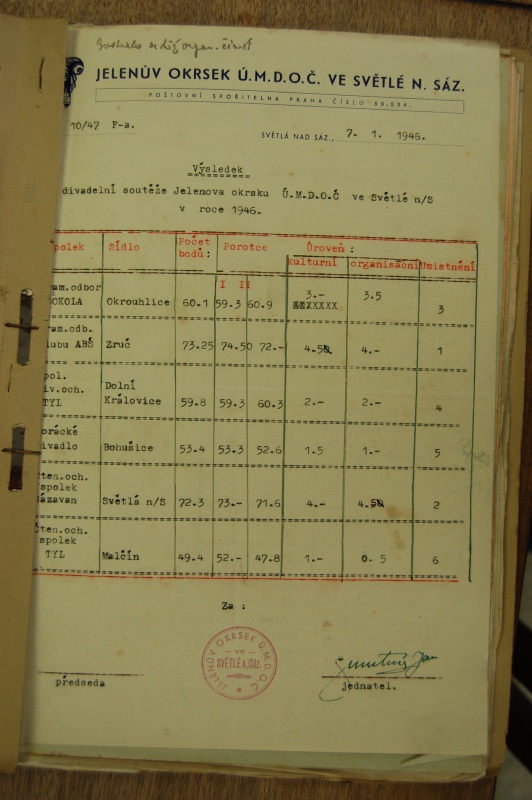 organ. činnost
JELENŮV OKRSEK Ú.M.D.O.Č. VE SVĚTLÉ N. SÁZ.
POŠTOVNÍ SPOŘITELNA PRAHA ČÍSLO 59.234.
10/47 F-a.
SVĚTLÁ NAD SÁZ., 7. 1. 1946.
Výsledek
divadelní soutěže Jelenova okrsku Ú.M.D.O.Č ve Světlé n/S
v roce 1946.
polek Sídlo Počet bodů: Porotce Úroveň : kulturní organisační Umístnění
I II
ram.odbor OKOLA Okrouhlice 60.1 59.3 60.9 3.- 3.5 3
ram.odb. lubu ABS Zruč 73.25 74.50 72.- 4.50 4.- 1
pol. iv.och. TYL Dolní Královice 59.8 59.3 60.3 2.- 2.- 4
orácké ivadlo Bohušice 53.4 53.3 52.6 1.5 1.- 5
ten.och. spolek ázavan Světlá n/S 72.3 73.- 71.6 4.- 4.50 2
ten.och. spolek TYL Malčín 49.4 52.- 47.8 1.- 0.5 6
Za :
JELENŮV OKRSEK Ú.M.D.O.Č.
VE
SVĚTLÉ N.SÁZ.
předseda
jednatel.